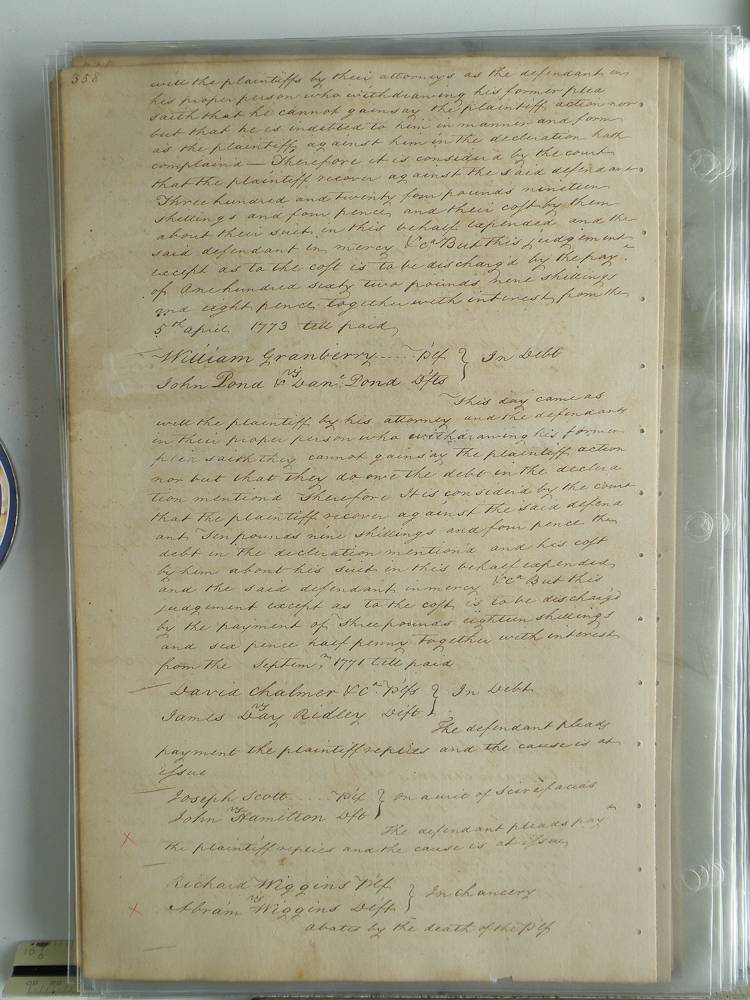 358
well the plaintiffs by their attorneys as the defendant in
his proper person who withdrawing his former plea
saith that he cannot gainsay the plaintiff action nor
but that he is indebted to him in manner and form
as the plaintiffs against him in the declaration hath
complaind — Therefore it is considerd by the court
that the plaintiff recover against the said defendant
Three hundred and twenty four pounds nineteen
shillings and four pence and their cost by them
about their suit in this behalf expended and the
said defendant in mercy &ca But this judgement
except as to the cost is to be discharg'd by the pay
of One hundred sixty two pounds nine shillings
and eight pence together with interest from the
5th april 1773 till paid
William Granberry .... Plf } In Debt
vs
John Pond & Danl Pond Dfts
This day came as
well the plaintiff by his attorney and the defendants
in their proper person who withdrawing his former
plea saith they cannot gainsay the plaintiff action
nor but that they do owe the debt in the declara
tion mentiond Therefore It is considerd by the court
that the plaintiff recover against the said defend
ant Ten pounds nine shillings and four pence the
debt in the declaration mentiond and his cost
by him about his suit in this behalf expended
and the said defendant in mercy &ca But this
judgement except as to the cost is to be discharg'd
by the payment of Three pounds eighteen shillings
and six pence half penny together with interest
from the Septemr 1771 till paid
David Chalmer & Co. Plfs } In Debt
vs
James Day Ridley Dift
The defendant pleads
payment the plaintiff replies and the cause is at
issue
Joseph Scott .... Plf } on a writ of Scire facias
vs
John Hamilton Dft
The defendant pleads paym
the plaintiff replies and the cause is at issue
Richard Wiggins Plf } In Chancery
vs
Abram Wiggins Dift
abates by the death of the Plf